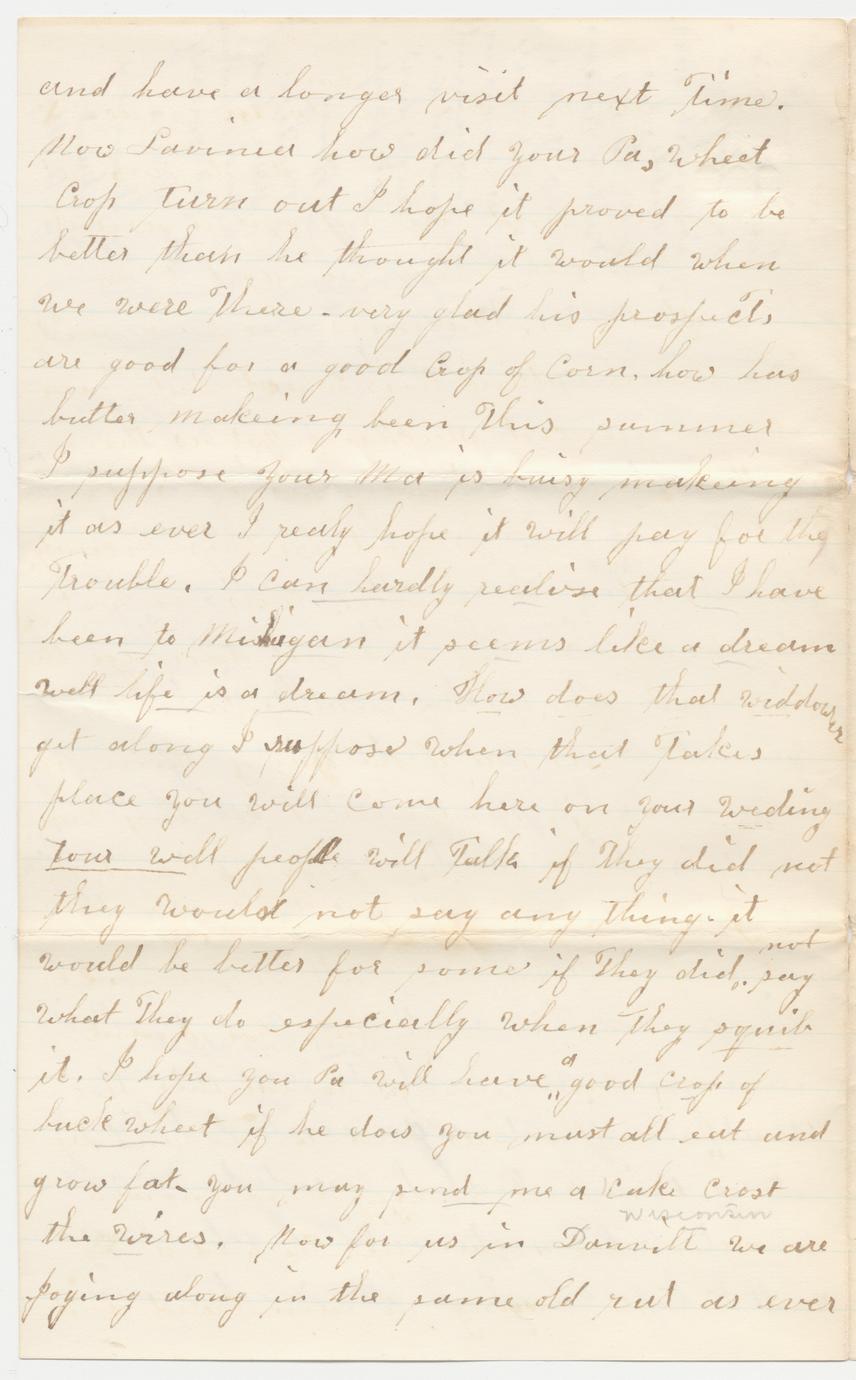 and have a longer visit next Time.
Now Lavinia how did your Pa, wheet
Crop turn out I hope it proved to be
better than he thought it would when
we were There - very glad his prospects
are good for a good Crop of Corn. how has
butter makeing been This summer
I suppose your Ma is buisy makeing
it as ever I realy hope it will pay for the
Trouble. I can hardly realise that I have
been to Mishigan it seems like a dream
well life is a dream. How does that widdower
get along I suppose when that Takes
place you will Come here on your weding
tour well people will Talk if They did not
they would not say any thing. it
would be better for some if They did not say
what They do especially when They squib
it. I hope you Pa will have a good crop of
buck wheet if he does you must all eat and
grow fat - you may send me a Cake Crost
Wisconsin
the wires. Now for us in Danvill we are
joging along in the same old rut as ever